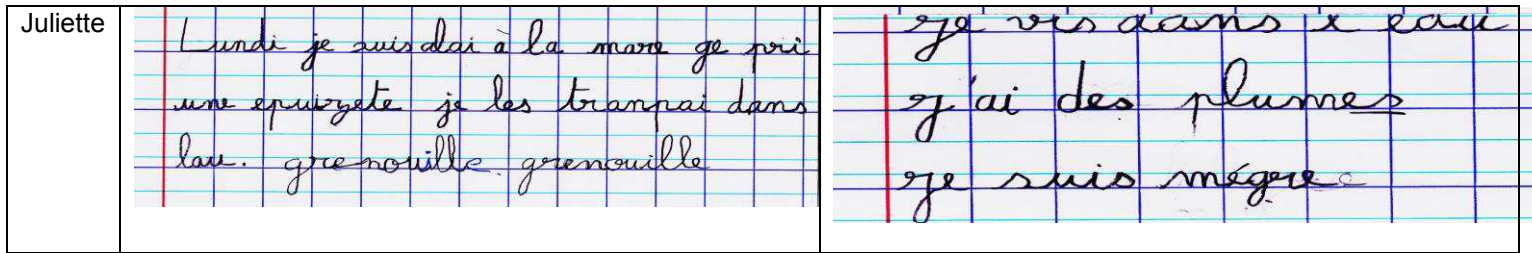 Juliette
Lundi je suis alai à la mare ge pri
une epuizete je les tranpai dans
lau. grenouille grenouille
je vis dans x eau
j'ai des plumes
je suis mégre